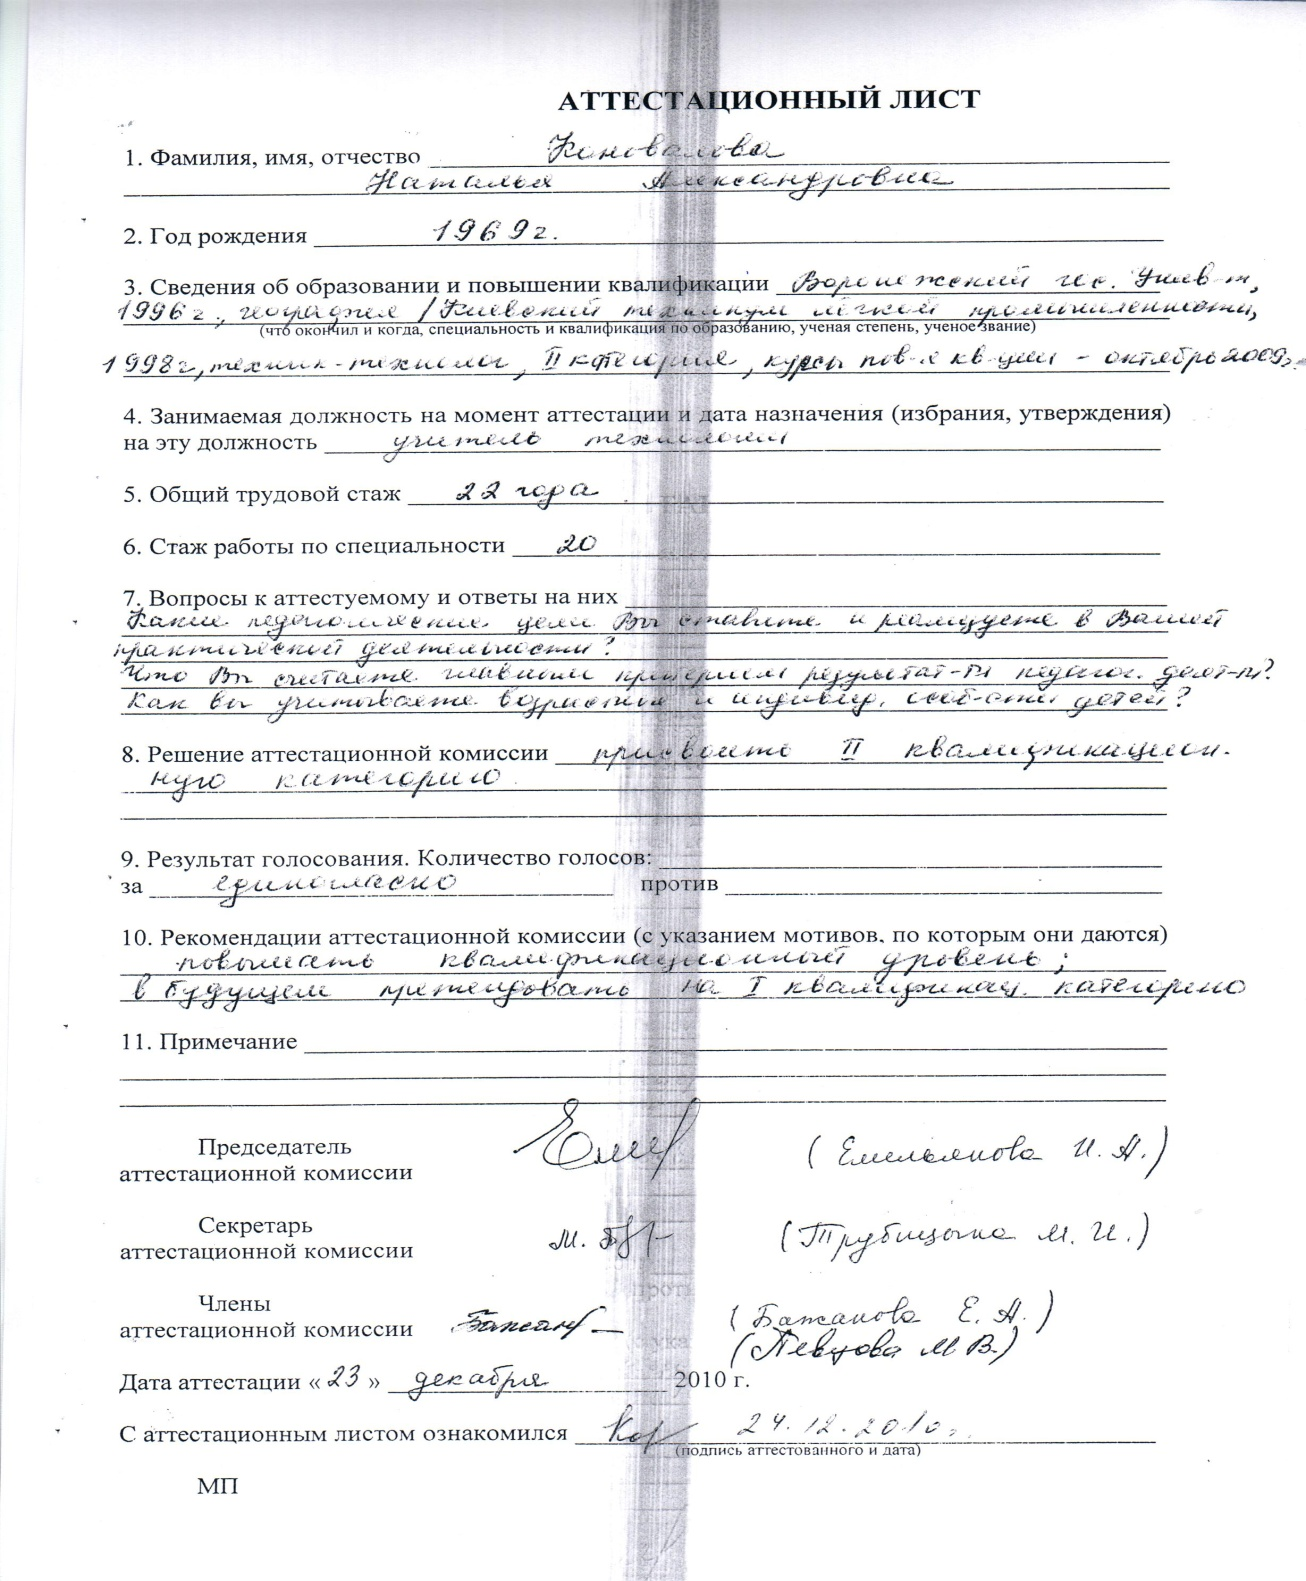 АТТЕСТАЦИОННЫЙ ЛИСТ
1. Фамилия, имя, отчество Коновалова
Наталья Александровна
2. Год рождения 1969г.
3. Сведения об образовании и повышении квалификации Воронежский гос. Унив-т,
1996г., география / Киевский техникум лёгкой промышленности,
(что окончил и когда, специальность и квалификация по образованию, ученая степень, ученое звание)
1998г, техник-технолог, II категория, курсы пов-я кв-ции - октябрь 2009г.
4. Занимаемая должность на момент аттестации и дата назначения (избрания, утверждения)
на эту должность учитель технологии
5. Общий трудовой стаж 22 года
6. Стаж работы по специальности 20
7. Вопросы к аттестуемому и ответы на них
Какие педагогические цели Вы ставите и реализуете в Вашей
практической деятельности?
Что Вы считаете главным критерием результат-ти педагог. деят-ти?
Как вы учитываете возрастные и индивид. особ-сти детей?
8. Решение аттестационной комиссии присвоить II квалификацион-
ную категорию
9. Результат голосования. Количество голосов:
за единогласно против
10. Рекомендации аттестационной комиссии (с указанием мотивов, по которым они даются)
повышать квалификационный уровень;
в будущем претендовать на I квалификац. категорию
11. Примечание
Председатель
аттестационной комиссии (Емельянова И. А.)
Секретарь
аттестационной комиссии М. (Трубицына М. И.)
Члены
аттестационной комиссии Бажан (Бажанова Е. А.)
(Певцова М В.)
Дата аттестации «23» декабря 2010 г.
С аттестационным листом ознакомился 24.12.2010г.
(подпись аттестованного и дата)
МП